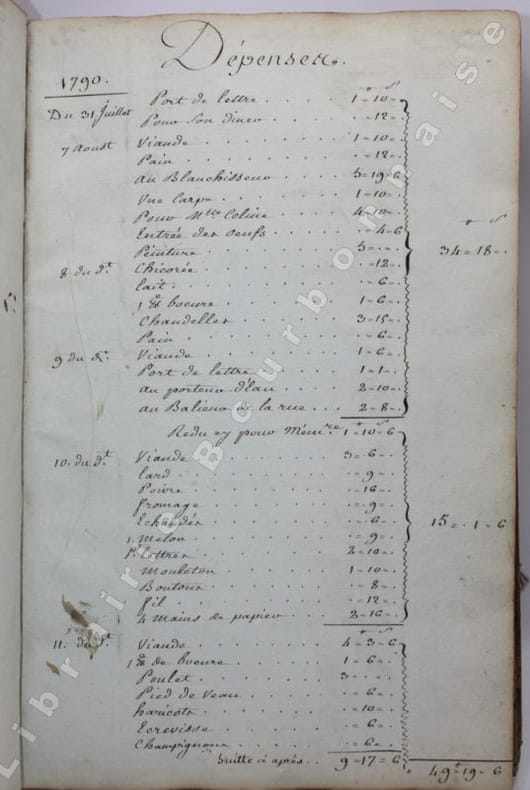 Dépenses.
1790.
Du 31 Juillet Port de lettre . . . . 1 = 10 = .
Pour son diner . . . . . = 12 = .
7 Aoust Viande . . . . . . 1 = 10 = .
Pain . . . . . . . = 12 = .
au Blanchisseur . . . . 5 = 19 = 6
Une Carpe . . . . . 1 = 10 = .
Pour Mlle Celine . . . . 4 = 10 = .
Entrée des oeufs . . . . . = 4 = 6
Peinture . . . . . . 5 = . = . 34 = 18 = .
8 du dt. Chicorée . . . . . . = 12 = .
Lait . . . . . . . = 6 = .
1 lb boeure . . . . . 1 = 6 = .
Chandelles . . . . . 3 = 15 = .
Pain . . . . . . . = 6 = .
9 du dt. Viande . . . . . . 1 = 6 = .
Port de lettre . . . . 1 = 1 = .
au porteur d'Eau . . . . 2 = 10 = .
au Balieur de la rue . . . 2 = 8 = .
Redu cy pour Mémre. 1 = 10 = 6
10. du dt. Viande . . . . . . 3 = 6 = .
Lard . . . . . . . = 9 = .
Poivre . . . . . . = 16 = .
fromage . . . . . . = 9 = .
Echaudés . . . . . . = 6 = . 15 = . 1 = 6
1. Melon . . . . . . = 9 = .
Pt. lettres . . . . . 2 = 10 = .
Mouleton . . . . . 1 = 10 = .
Boutons . . . . . . = 8 = .
fil . . . . . . . = 12 = .
4 mains de papier . . . 2 = 16 = .
11. du dt. Viande . . . . . . 4 = 3 = 6
1 lb de boeure . . . . 1 = 6 = .
Poulet . . . . . . 3 = . = .
Pied de Veau . . . . . = 6 = .
haricots . . . . . . = 10 = .
Ecrevisse . . . . . . = 6 = .
Champignons . . . . . = 6 = .
Suitte ci après . . 9 = 17 = 6
49 = 19 = 6
Librairie Bourbonnaise